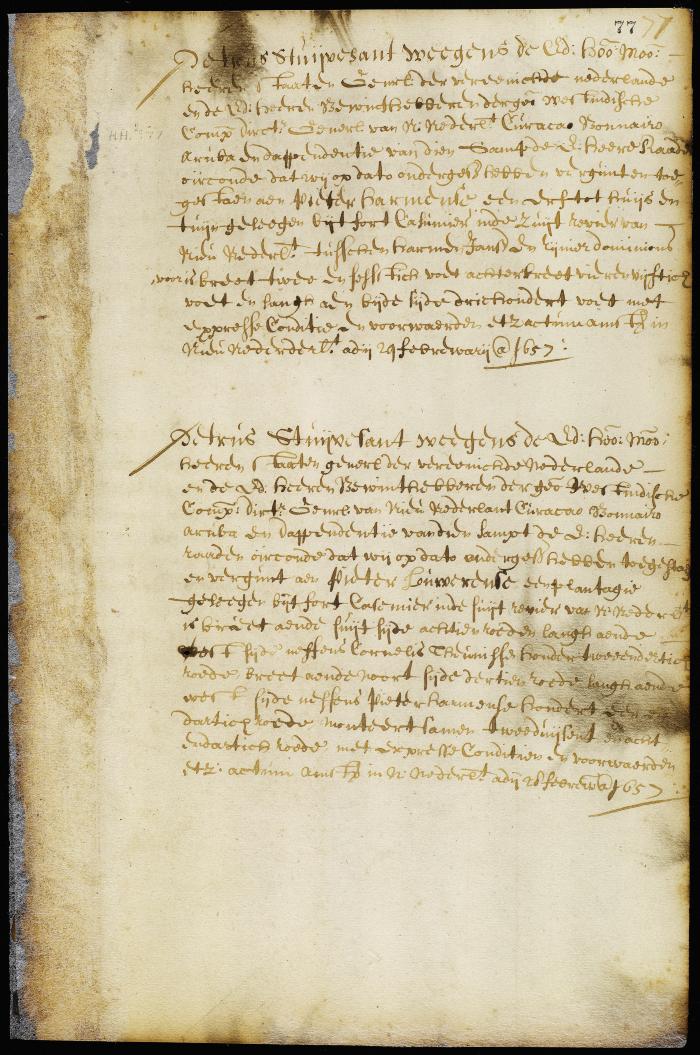 77 77
Petrus Stuijvesant weegens de Ed: Hoo: Moo:
heeren Staaten Generl der vereenichde nederlande
ende Ed: heeren Bewinthebberen der geo: west Indische
Comp: dirctr Generl van N: Nederlt Curacao Bonnairo
Aruba en dappendentie van dien Samp de E: heere Raade
oirconde dat wij op dato ondergesz hebben vergunt en toe-
gestaen aen Pieter Harmense een erf tot huijs en
tuijn geleegen bijt fort Casimier inde Zuijt revier van
Nieu Nederlt tusschen Harmen Jansz en Rijnier dominicus
voor is breet twee en sesstich voet achter breet vier en vijftich
voet en langh aen bijde sijde driehondert voet met
expresse Conditie en voorwaerden etz actum amst in
Nieu Nederderlt adij 29 febrewarij @ 1657:
HH. 77
Petrus Stuijvesant weegens de Ed: Hoo: Moo:
heeren Staaten generl der vereenichde Nederlande
ende Ed: heeren Bewinthebberen der geo: West Indische
Comp: dirtr Generl van Nieu Nederlant Curacao Bonnairo
Aruba en dappendentie van dien sampt de E: heeren
raaden oirconde dat wij op dato ondergesz hebben toegestaen
en vergunt aen Pieter Louwerense een plantagie
geleegen bijt fort Casemier inde suijt revier van N: Nederlt
is breeet aende suijt sijde achtien roeden langh aende
West sijde neffens Cornelis Theunisse hondert twee en dertich
roede breet aende noort sijde dertien roede langh aende
west sijde neffens Pieter Harmense hondert een en
dartich roede monteert samen tweeduijsent en acht
endartich roede met expresse Conditien en voorwaerden
etz: actum amst in N: Nederlt adij 28 febrew @ 1657: